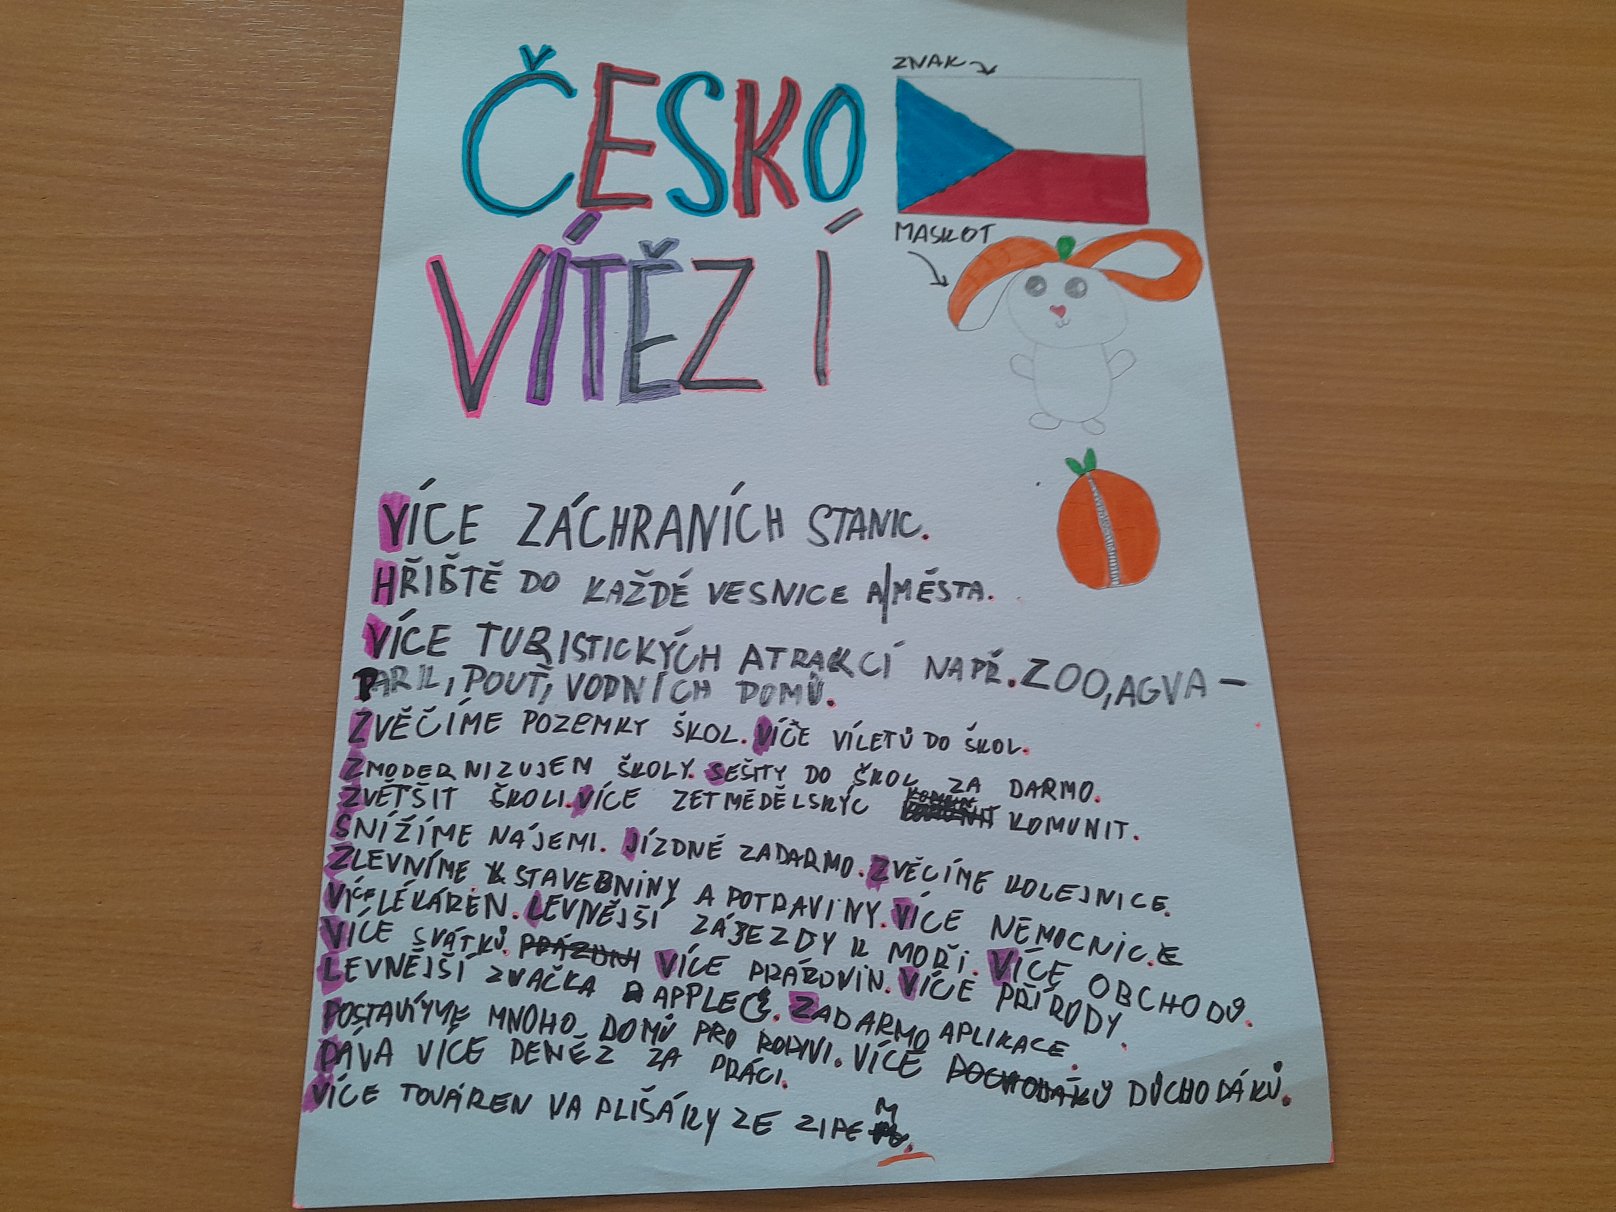 ČESKO
ZNAK
VÍTĚZÍ
MASKOT
VÍCE ZÁCHRANÍCH STANIC.
HŘIŠTĚ DO KAŽDÉ VESNICE A MĚSTA.
VÍCE TURISTICKÝCH ATRAKCÍ NAPŘ. ZOO, AGVA-
PARK, POUŤ, VODNÍCH DOMŮ.
ZVĚČÍME POZEMKY ŠKOL. VÍČE VÍLETŮ DO ŠKOL.
ZMODERNIZUJEM ŠKOLY. SEŠITY DO ŠKOL ZA DARMO.
ZVĚTŠIT ŠKOLI. VÍCE ZETMĚDĚLSKÝC KOMUNIT.
SNÍŽÍME NÁJEMI. JÍZDNÉ ZADARMO. ZVĚCÍME KOLEJNICE.
ZLEVNÍME STAVEBNINY A POTRAVINY. VÍCE NEMOCNIC.
VÍCE LÉKÁREN. LEVNĚJŠÍ ZÁJEZDY K MOŘI. VÍCE OBCHODŮ.
VÍCE SVÁTKŮ. PRÁZDNI VÍCE PRÁZDNIN. VÍCE PŘÍRODY.
LEVNĚJŠÍ ZNAČKA APPLE. ZADARMO APLIKACE.
POSTAVÍME MNOHO DOMŮ PRO RODINI. VÍCE DOCHODÁKŮ DŮCHODÁKŮ.
DÁVA VÍCE PENĚZ ZA PRÁCI.
VÍCE TOVÁREN NA PLIŠÁKY ZE ZIPEM.